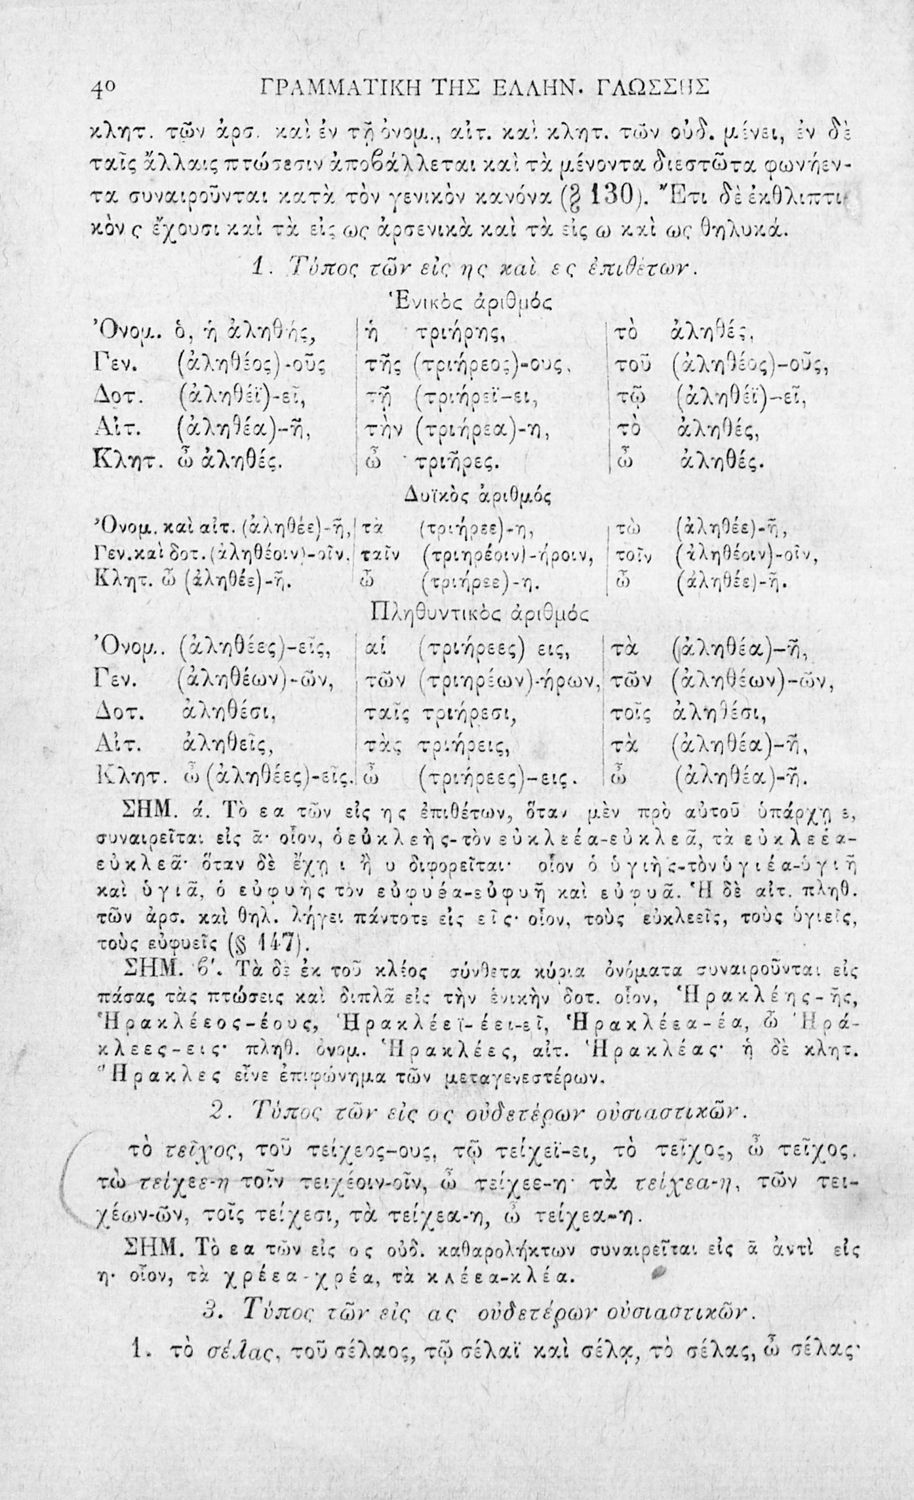 40 ΓΡΑΜΜΑΤΙΚΗ ΤΗΣ ΕΛΛΗΝ. ΓΛΩΣΣΗΣ
κλητ. τῶν ἀρσ. καὶ ἐν τῇ ὀνομ., αἰτ. καὶ κλητ. τῶν οὐδ. μένει, ἐν δὲ
ταῖς ἄλλαις πτώσεσιν ἀποβάλλεται καὶ τὰ μένοντα διεστῶτα φωνήεν-
τα συναιροῦνται κατὰ τὸν γενικὸν κανόνα (§ 130). Ἔτι δὲ ἐκθλιπτι-
κὸν ς ἔχουσι καὶ τὰ εἰς ως ἀρσενικὰ καὶ τὰ εἰς ω καὶ ως θηλυκά.
1. Τύπος τῶν εἰς ης καὶ ες ἐπιθέτων.
Ἑνικὸς ἀριθμός
Ὀνομ. ὁ, ἡ ἀληθής, ἡ τριήρης, τὸ ἀληθές,
Γεν. (ἀληθέος)-οῦς τῆς (τριήρεος)-ους, τοῦ (ἀληθέος)-οῦς,
Δοτ. (ἀληθέϊ)-εῖ, τῇ (τριήρεϊ-ει, τῷ (ἀληθέϊ)-εῖ,
Αἰτ. (ἀληθέα)-ῆ, τὴν (τριήρεα)-η, τὸ ἀληθές,
Κλητ. ὦ ἀληθές. ὦ τριῆρες. ὦ ἀληθές.
Δυϊκὸς ἀριθμός
Ὀνομ. καὶ αἰτ. (ἀληθέε)-ῆ, τὰ (τριήρεε)-η, τὼ (ἀληθέε)-ῆ,
Γεν. καὶ δοτ. (ἀληθέοιν)-οῖν. ταῖν (τριηρέοιν)-ήροιν, τοῖν (ἀληθέοιν)-οῖν,
Κλητ. ὦ (ἀληθέε)-ῆ. ὦ (τριήρεε)-η. ὦ (ἀληθέε)-ῆ.
Πληθυντικὸς ἀριθμός
Ὀνομ. (ἀληθέες)-εῖς, αἱ (τριήρεες) εις, τὰ (ἀληθέα)-ῆ,
Γεν. (ἀληθέων)-ῶν, τῶν (τριηρέων)-ήρων, τῶν (ἀληθέων)-ῶν,
Δοτ. ἀληθέσι, ταῖς τριήρεσι, τοῖς ἀληθέσι,
Αἰτ. ἀληθεῖς, τὰς τριήρεις, τὰ (ἀληθέα)-ῆ,
Κλητ. ὦ (ἀληθέες)-εῖς. ὦ (τριήρεες)-εις. ὦ (ἀληθέα)-ῆ.
ΣΗΜ. ά. Τὸ εα τῶν εἰς ης ἐπιθέτων, ὅταν μὲν πρὸ αὐτοῦ ὑπάρχῃ ε,
συναιρεῖται εἰς ᾶ· οἷον, ὁ εὐκλεὴς-τὸν εὐκλεέα-εὐκλεᾶ, τὰ εὐκλεέα-
εὐκλεᾶ· ὅταν δὲ ἔχῃ ι ἢ υ διφορεῖται· οἷον ὁ ὑγιὴς-τὸν ὑγιέα-ὑγιῆ
καὶ ὑγιᾶ, ὁ εὐφυὴς τὸν εὐφυέα-εὐφυῆ καὶ εὐφυᾶ. Ἡ δὲ αἰτ. πληθ.
τῶν ἀρσ. καὶ θηλ. λήγει πάντοτε εἰς εῖς· οἷον, τοὺς εὐκλεεῖς, τοὺς ὑγιεῖς,
τοὺς εὐφυεῖς (§ 147).
ΣΗΜ. β'. Τὰ δὲ ἐκ τοῦ κλέος σύνθετα κύρια ὀνόματα συναιροῦνται εἰς
πάσας τὰς πτώσεις καὶ διπλᾶ εἰς τὴν ἑνικὴν δοτ. οἷον, Ἡρακλέης-ῆς,
Ἡρακλέεος-έους, Ἡρακλέεϊ-έει-εῖ, Ἡρακλέεα-έα, ὦ Ἡρά-
κλεες-εις· πληθ. ὀνομ. Ἡρακλέες, αἰτ. Ἡρακλέας· ἡ δὲ κλητ.
Ἥρακλες εἶνε ἐπιφώνημα τῶν μεταγενεστέρων.
2. Τύπος τῶν εἰς ος οὐδετέρων οὐσιαστικῶν.
τὸ τεῖχος, τοῦ τείχεος-ους, τῷ τείχεϊ-ει, τὸ τεῖχος, ὦ τεῖχος.
τὼ τείχεε-η τοῖν τειχέοιν-οῖν, ὦ τείχεε-η· τὰ τείχεα-η, τῶν τει-
χέων-ῶν, τοῖς τείχεσι, τὰ τείχεα-η, ὦ τείχεα-η.
ΣΗΜ. Τὸ εα τῶν εἰς ος οὐδ. καθαρολήκτων συναιρεῖται εἰς ᾶ ἀντὶ εἰς
η· οἷον, τὰ χρέεα-χρέα, τὰ κλέεα-κλέα.
3. Τύπος τῶν εἰς ας οὐδετέρων οὐσιαστικῶν.
1. τὸ σέλας, τοῦ σέλαος, τῷ σέλαϊ καὶ σέλᾳ, τὸ σέλας, ὦ σέλας·